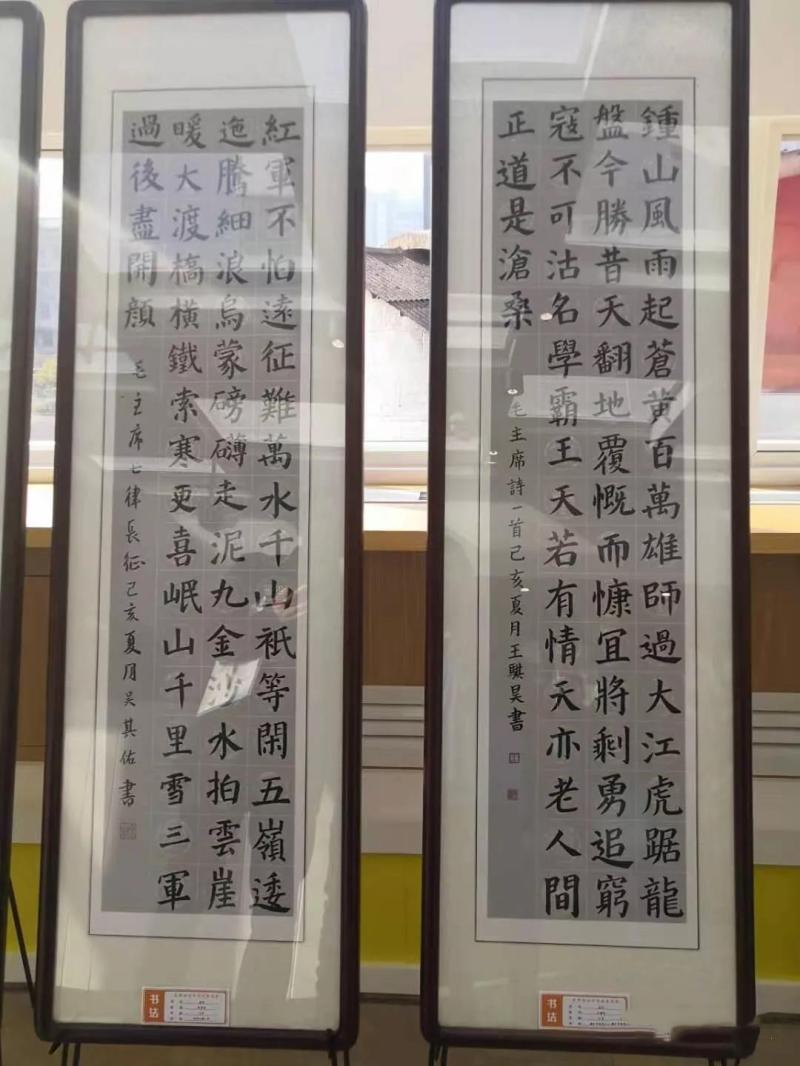 鍾山風雨起蒼黃百萬雄師過大江虎踞龍
盤今勝昔天翻地覆慨而慷宜將剩勇追窮
寇不可沽名學霸王天若有情天亦老人間
正道是滄桑
毛主席詩一首己亥夏月王騏昊書
书法
紅軍不怕遠征難萬水千山祇等閑五嶺逶
迤騰細浪烏蒙磅礴走泥丸金沙水拍雲崖
暖大渡橋橫鐵索寒更喜岷山千里雪三軍
過後盡開顏
毛主席七律長征己亥夏月吳其佑書
书法